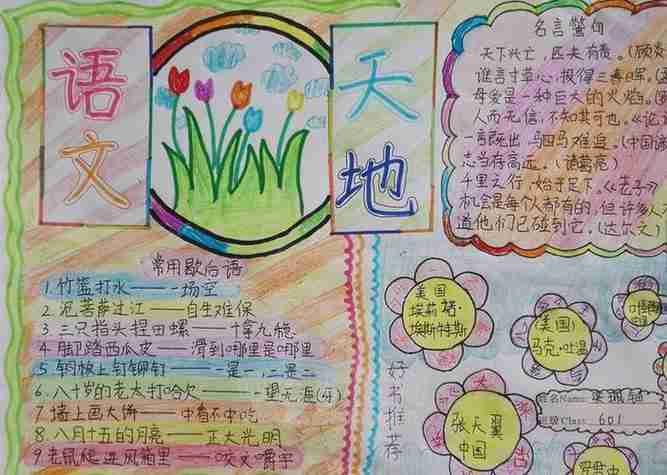 语文
天地
名言警句
天下兴亡，匹夫有责。(顾炎
谁言寸草心，报得三春晖。
母爱是一种巨大的火焰。
人而无信，不知其可也。《论
一言既出，马四马难追。(中国
志当存高远。(诸葛亮)
千里之行，始于足下。《老子》
机会是每个人都有的，但许多人
道他们已碰到它。(达尔文)
常用歇后语
1.竹篮打水——一场空
2.泥菩萨过江——自生难保
3.三只指头捏田螺——十拿九稳
4.脚踏西瓜皮——滑到哪里是哪里
5.铜板上钉铆钉——一是一,二是二
6.八十岁的老太打哈欠——一望无涯(牙)
7.墙上画大饼——中看不中吃
8.八月十五的月亮——正大光明
9.老鼠爬进风箱里——咬文嚼字
好书推荐
美国
埃莉诺
埃斯特斯
(美国)
马克·吐温
张天翼
中国
姓名Name:
班级Class: 601